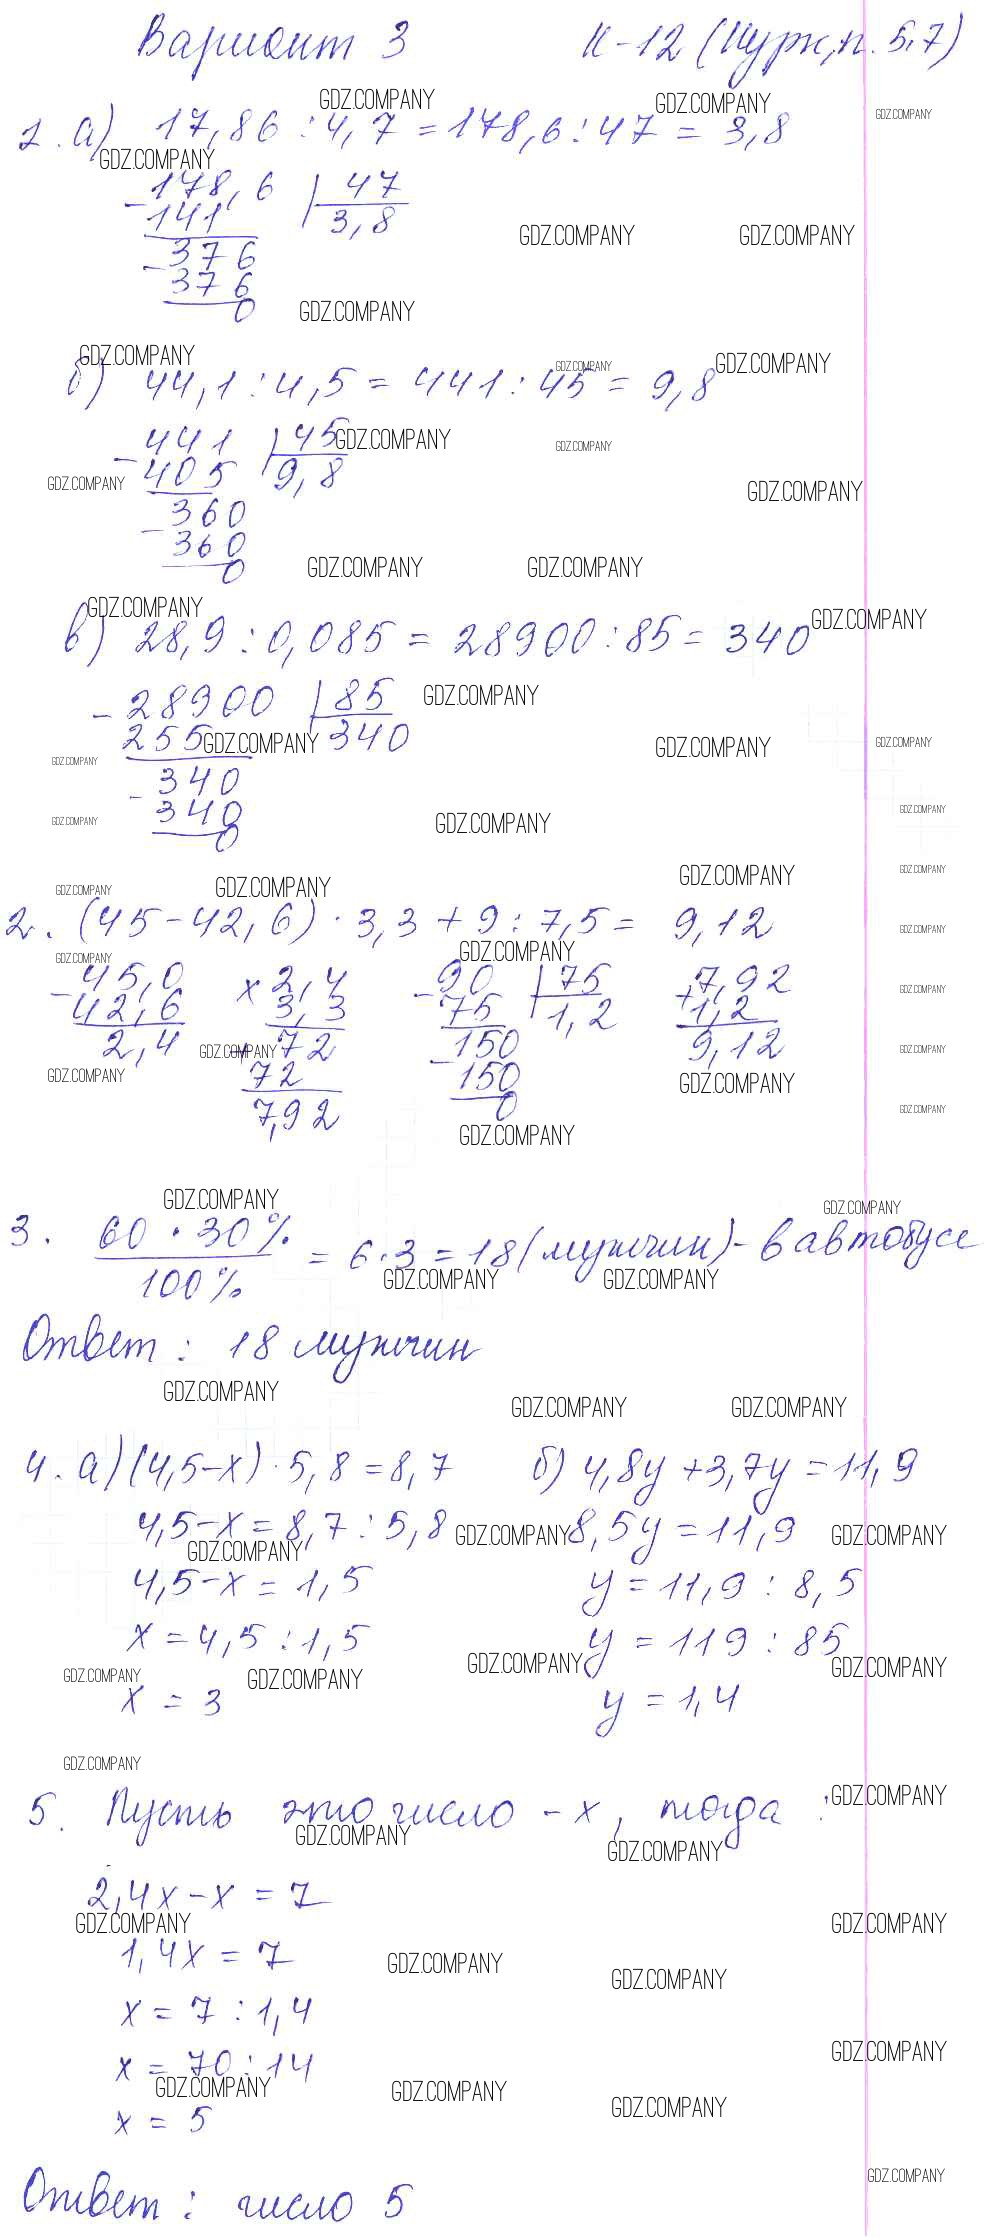 Вариант 3 К-12 (Чурк, п. 5,7)
1. а) 17,86 : 4,7 = 178,6 : 47 = 3,8
- 178,6 | 47
141 3,8
- 376
376
0
б) 44,1 : 4,5 = 441 : 45 = 9,8
- 441 | 45
405 9,8
- 360
360
0
в) 28,9 : 0,085 = 28900 : 85 = 340
- 28900 | 85
255 340
- 340
340
0
2. (45 - 42,6) · 3,3 + 9 : 7,5 = 9,12
- 45,0 × 2,4 - 90 | 75 + 7,92
42,6 3,3 75 1,2 1,2
2,4 + 72 - 150 9,12
72 150
7,92 0
3. 60 · 30% / 100% = 6 · 3 = 18 (мужчин) - в автобусе
Ответ: 18 мужчин
4. а) (4,5 - х) · 5,8 = 8,7 б) 4,8у + 3,7у = 11,9
4,5 - х = 8,7 : 5,8 8,5у = 11,9
4,5 - х = 1,5 у = 11,9 : 8,5
х = 4,5 : 1,5 у = 119 : 85
х = 3 у = 1,4
5. Пусть это число - х, тогда :
2,4х - х = 7
1,4х = 7
х = 7 : 1,4
х = 70 : 14
х = 5
Ответ: число 5
GDZ.COMPANY